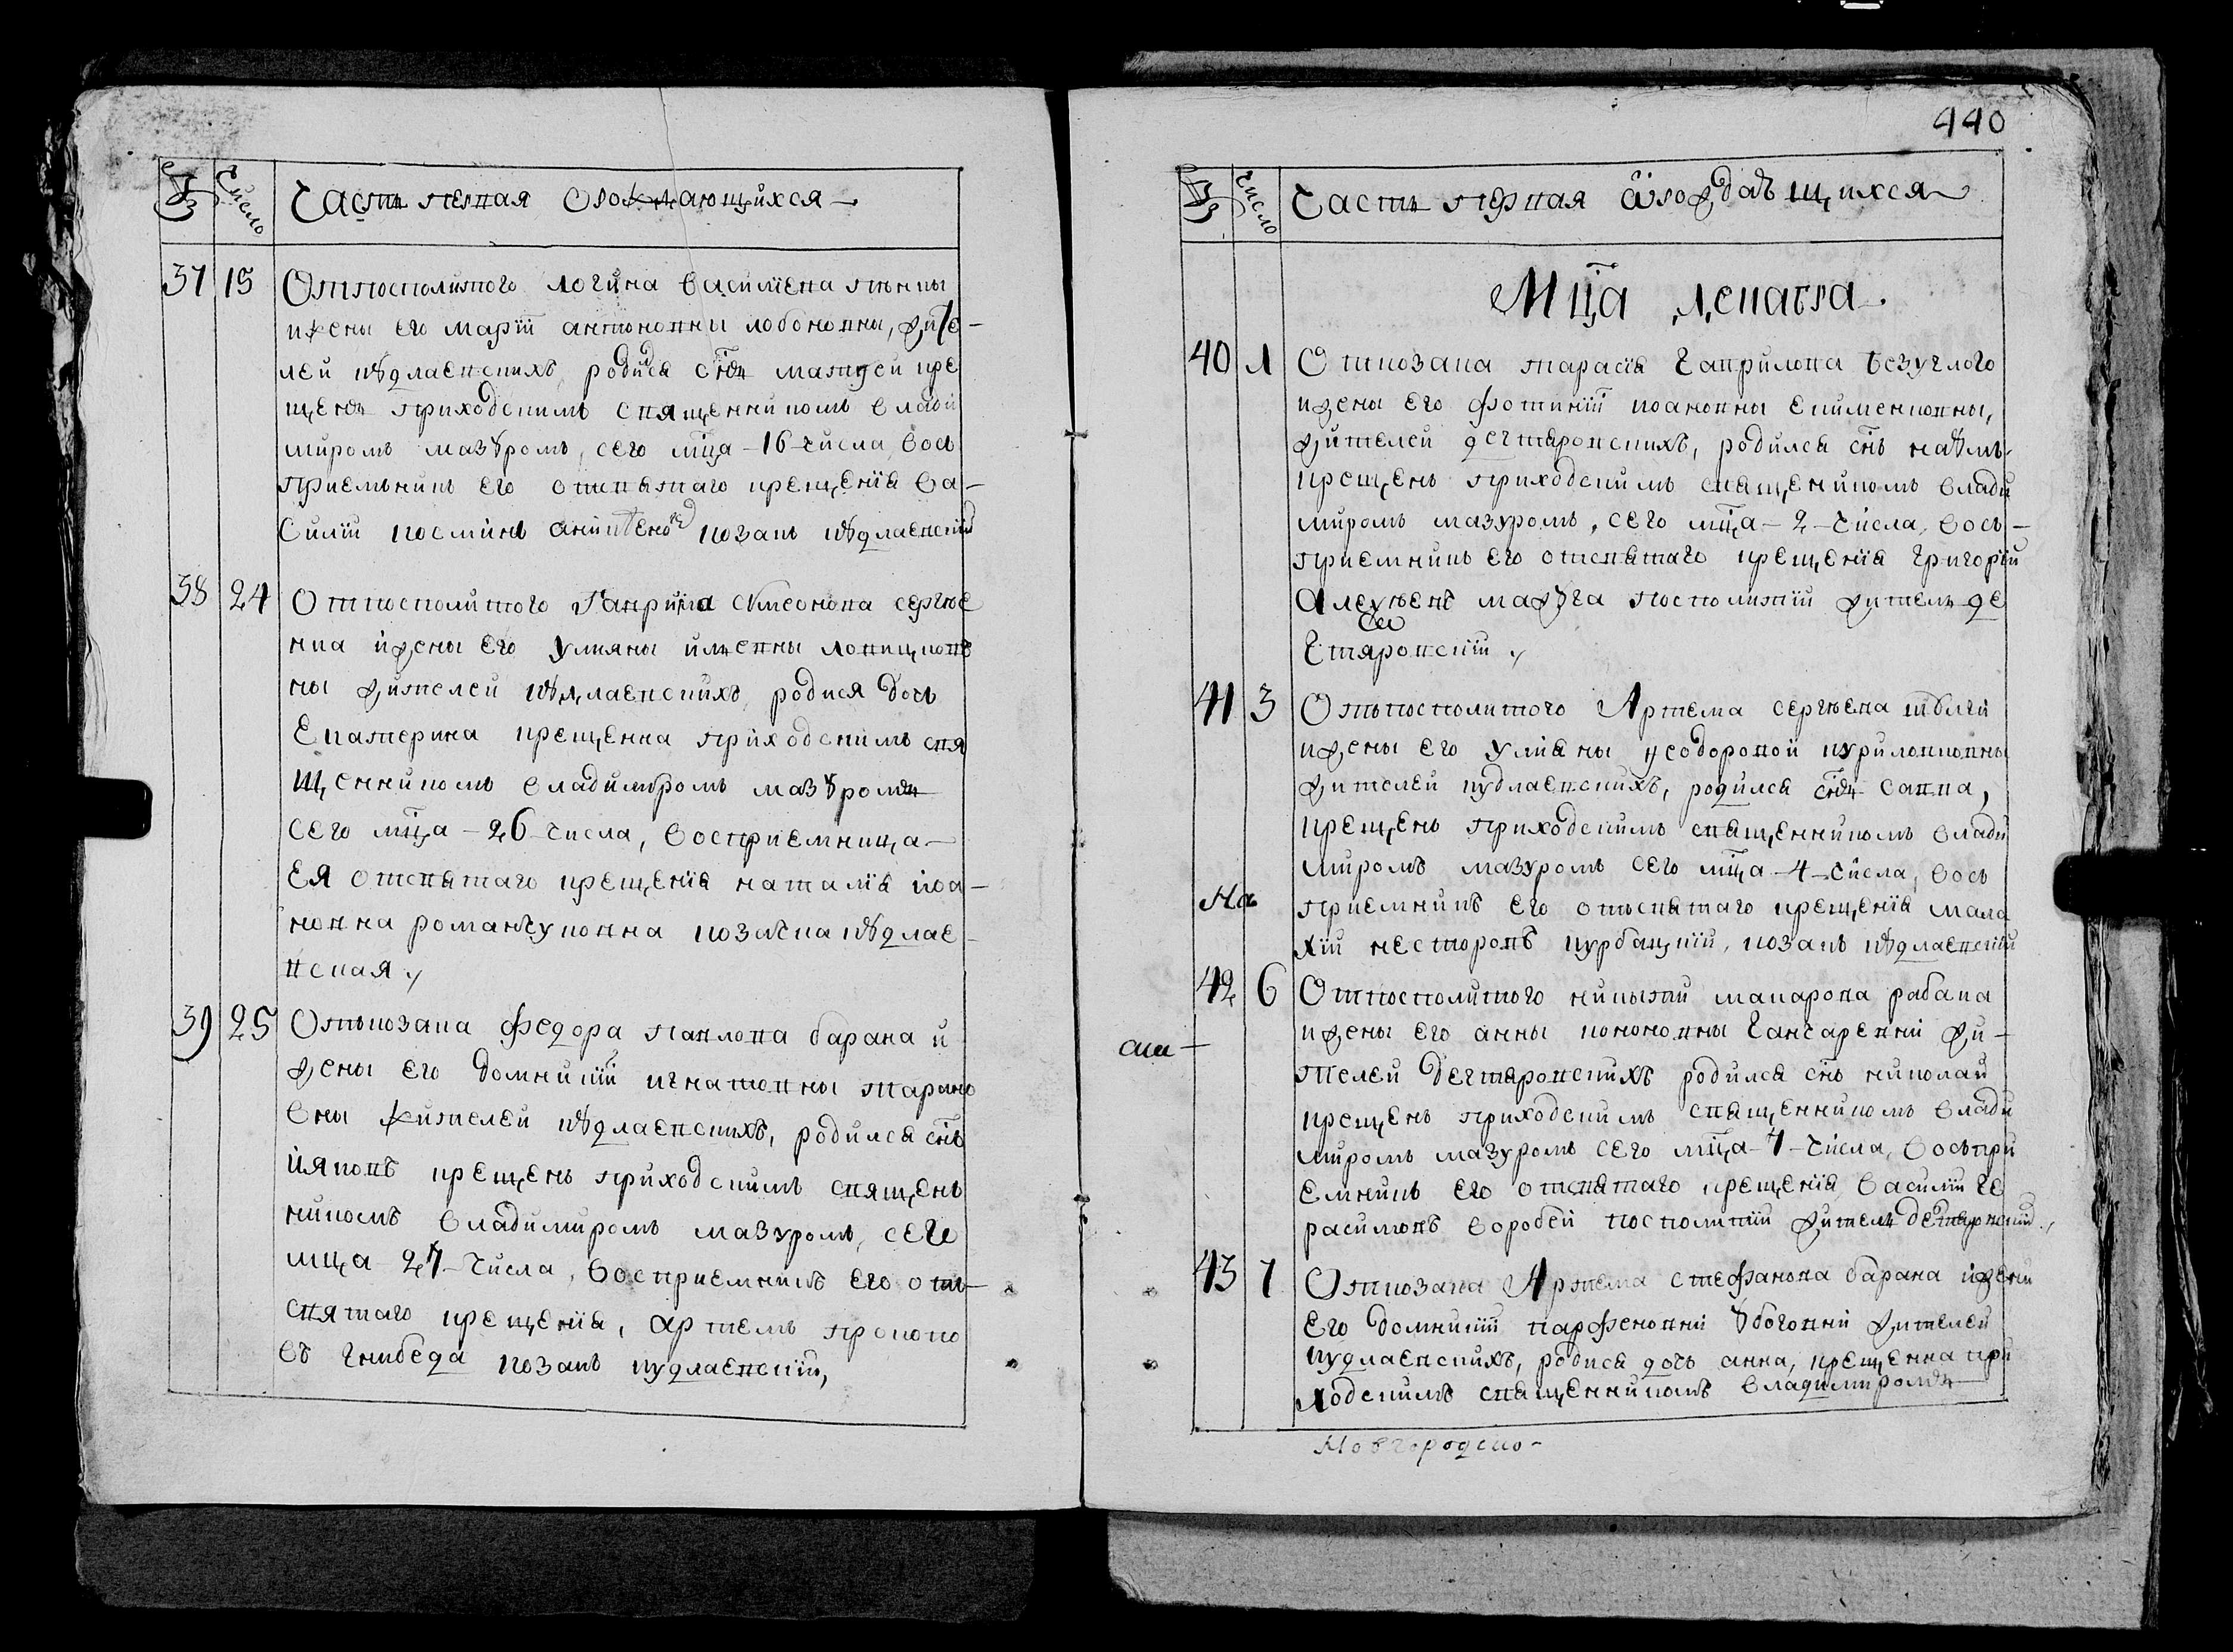 № Число Часть первая о рождающихся
37 15 От посполитого логина василиева
и жены его марiи антоновны лобоновны, жите-
лей кꙋдлаевскихъ, родися снъ матѳеи кре
щенъ приходскимъ священникомъ влади
миромъ мазꙋромъ, сего мца - 16 - числа, вось
приемникъ его отсвятаго крещенiя ва-
силiй космiнъ козакъ кꙋдлаевскiй
38 24 От посполитого Гаврила сѵмеонова сергѣе
нка и жены его ульяны
ны жителей кꙋдлаевскихъ, родися дочь
Екатерина крещенна приходскимъ свя
щенникомъ владимиромъ мазꙋромъ
сего мца - 26 - числа, восприемница
ея отсвятаго крещенiя наталiя iоа-
новна романчуковна козачка кꙋдлае-
вская,
39 25 Отъ козака федора павлова барана и
жены его домникiи игнатовны
жителей кꙋдлаевскихъ, родился снъ
iяковъ крещенъ приходскимъ священъ
никомъ владимиромъ мазуромъ, сего
мца 27 - числа, восприемникъ его от-
святаго крещенiя, артемъ прокопо
въ гнибеда козакъ кудлаевскiй,
440
№ Число Часть первая о рождающихся
Мца декавра.
40 1 От козака тарасiя гаврилова безуглого
и жены его фотинiи иоановны клименковны,
жителей дегтяровскихъ, родился снъ наумъ
крещенъ приходскимъ священникомъ влади
миромъ мазуромъ, сего мца - 2 - числа, вось-
приемникъ его отсвятаго крещенiя григорiй
Алеѯѣевъ посполитiй житель де
гтяровскiй,
41 3 Отъ посполитого Артема сергѣева
и жены его улiяны ѳеодоровой кириловковны
жителей кудлаевскихъ, родился снъ савва,
крещенъ приходскимъ священникомъ влади
миромъ мазуромъ сего мца - 4 - числа, вось
На
приемникъ его отъсвятаго крещенiя мала
хiй несторовъ курбацкiй, козакъ кꙋдлаевскiй
42 6 От посполитого никиты макарова рабака
и жены его анны кононовны Гончаревни жи-
телей дегтяровскихъ родился снъ николай
крещенъ приходскимъ священникомъ влади
миромъ мазуромъ сего мца - 7 - числа, восьпри
емникъ его отсвятаго крещенiя, василiй ге
расимовъ воробей посполитiй житель дегтяровскiй,
43 7 От козака Артема стефанова барана и жени
его домникiи парфеновни ꙋбоговни жителей
кудлаевскихъ, родися дочь анна, крещенна при
ходскимъ священникомъ владимиромъ
Новгородско-